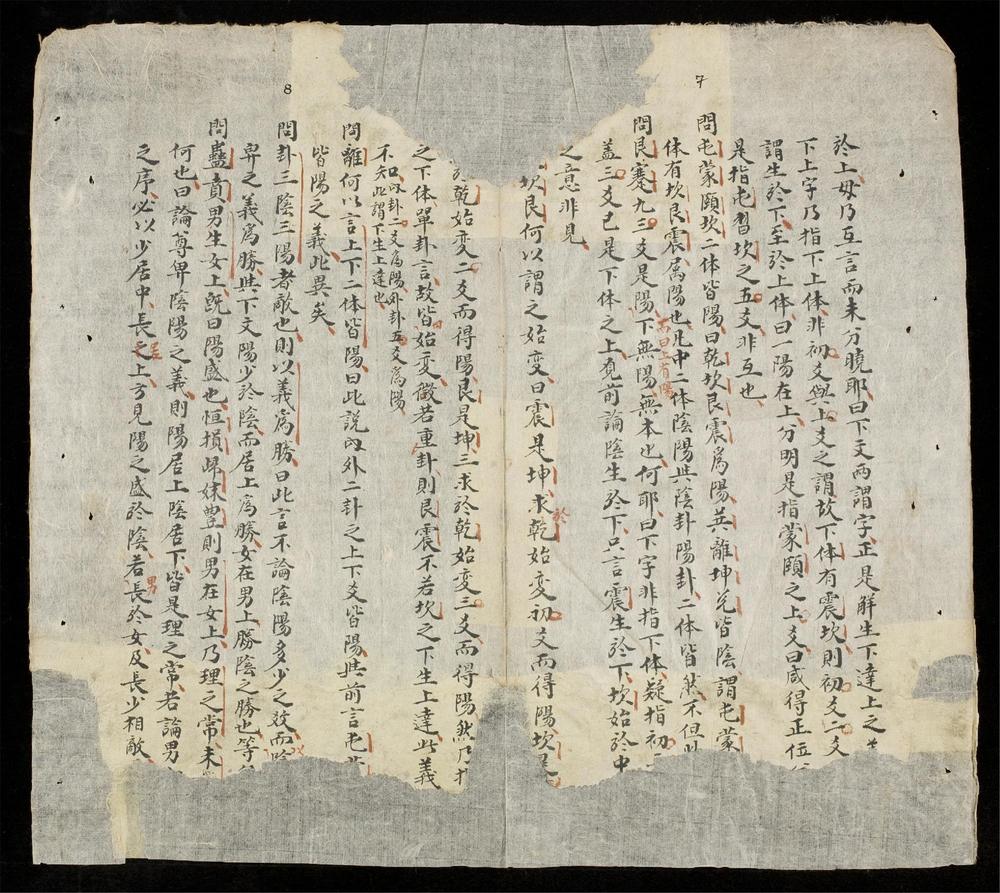 7
於上毋乃互言而未分曉耶曰下文两謂字正是解生下達上之
下上字乃指下上体非初爻與上爻之謂故下体有震坎則初爻二爻
謂生於下至於上体曰一陽在上分明是指蒙頤之上爻曰咸得正位
是指屯習坎之五爻非互也
問屯蒙頤坎二体皆陽曰乾坎艮震為陽共離坤兊皆陰謂屯蒙
体有坎艮震属陽也凡中二体陰陽共陰卦陽卦二体皆然不但
而曰上有陽
問艮蹇九三爻是陽下無陽無本也何耶曰下字非指下体疑指初
盖三爻已是下体之上竟前論陰生於下只言震生於下坎始於中
之意非見
坎艮何以謂之始変曰震是坤求於乾始変初爻而得陽坎是
8
於乾始変二爻而得陽艮是坤三求於乾始変三爻而得陽然乃
之下体單卦言故皆始変徵若重卦則艮震不若坎之下生上達此義
如坎卦二爻為陽外卦五爻為陽
不知此謂下生上達也
問離何以言上下二体皆陽曰此説内外二卦之上下爻皆陽共前言屯
皆陽之義此異矣
問卦三陰三陽者敵也則以義為勝曰此言不論陰陽多少之效而
卑之義為勝共下文陽少於陰而居上為勝女在男上勝陰之勝也等
問蠱賁男生女上旣曰陽盛也恒損歸妹豊則男在女上乃理之常未
何也曰論尊卑陰陽之義則陽居上陰居下皆是理之常若論男
之序必以少居中長之上方見陽之盛於陰若長男於女及長少相敵